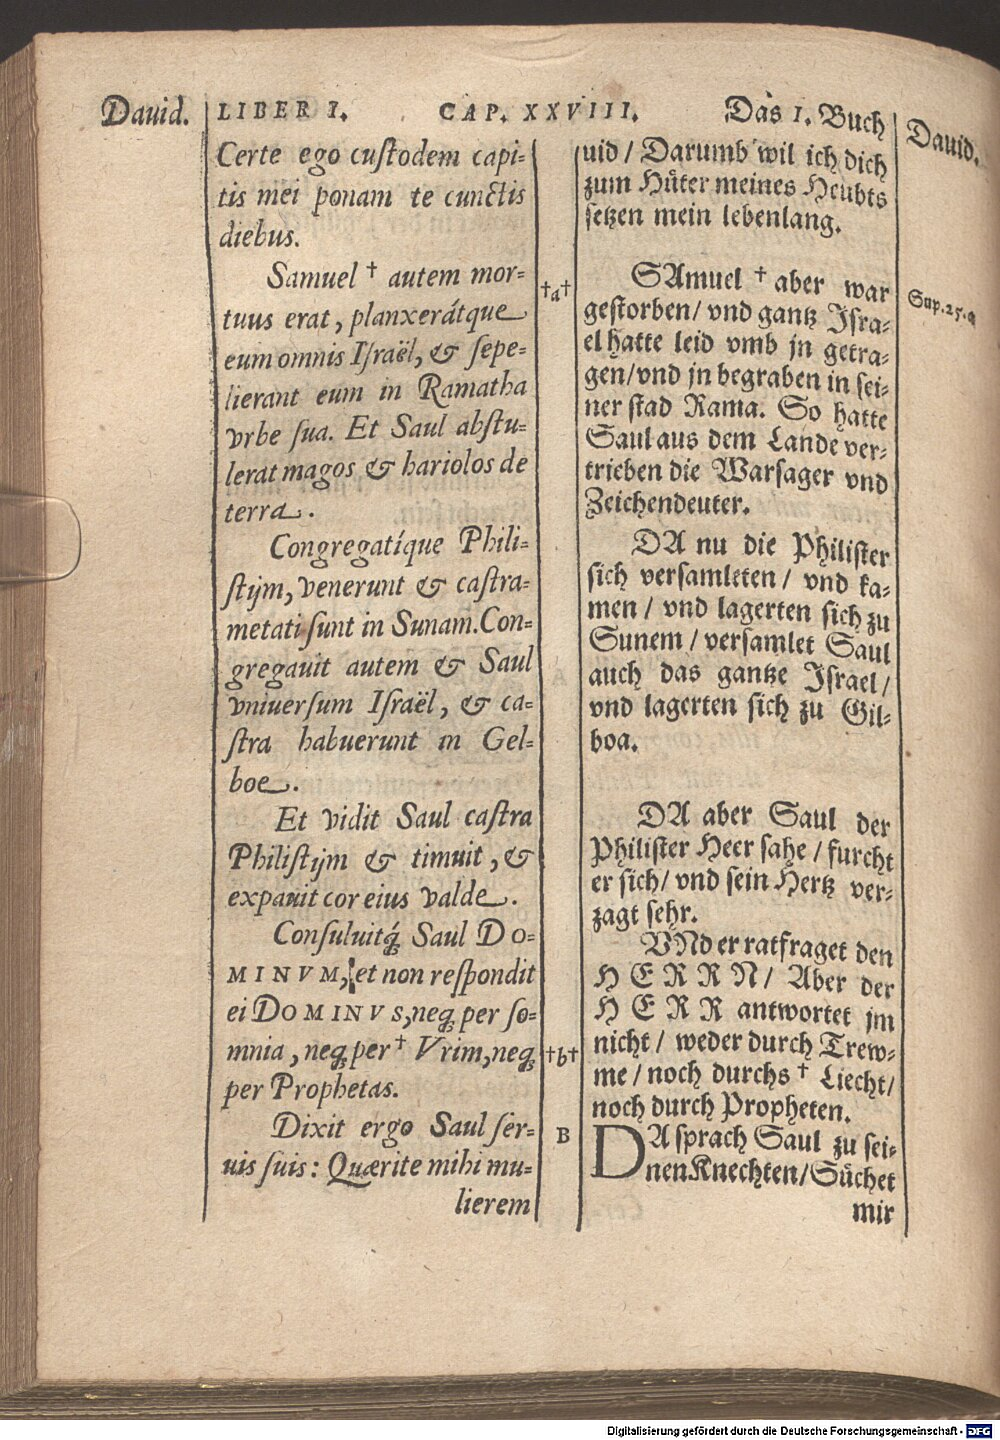 Dauid.
LIBER I. CAP. XXVIII. Das I. Buch
Dauid.
Certe ego cuſtodem capi-
tis mei ponam te cunctis
diebus.
Samuel † autem mor-
tuus erat, planxerátque
eum omnis Iſraël, & ſepe-
lierant eum in Ramatha
vrbe ſua. Et Saul abſtu-
lerat magos & hariolos de
terra.
Congregatíque Phili-
ſtijm, venerunt & caſtra-
metati ſunt in Sunam. Con-
gregauit autem & Saul
vniuerſum Iſraël, & ca-
ſtra habuerunt in Gel-
boe.
Et vidit Saul caſtra
Philiſtijm & timuit, &
expauit cor eius valde.
Conſuluitq́; Saul DO-
MINVM, et non reſpondit
ei DOMINVS, neq; per ſo-
mnia, neq; per † Vrim, neq;
per Prophetas.
Dixit ergo Saul ſer-
uis ſuis: Quærite mihi mu-
lierem
†a†
†b†
B
uid / Darumb wil ich dich
zum Hüter meines Heubts
ſetzen mein lebenlang.
SAmuel † aber war
geſtorben / vnd gantz Iſra-
el hatte leid vmb jn getra-
gen / vnd jn begraben in ſei-
ner ſtad Rama. So hatte
Saul aus dem Lande ver-
trieben die Warſager vnd
Zeichendeuter.
DA nu die Philiſter
ſich verſamleten / vnd ka-
men / vnd lagerten ſich zu
Sunem / verſamlet Saul
auch das gantze Iſrael /
vnd lagerten ſich zu Gil-
boa.
DA aber Saul der
Philiſter Heer ſahe / furcht
er ſich / vnd ſein Hertz ver-
zagt ſehr.
VNd er ratfraget den
HERRN / Aber der
HERR antwortet jm
nicht / weder durch Trew-
me / noch durchs † Liecht /
noch durch Propheten.
DA ſprach Saul zu ſei-
nen Knechten / Süchet
mir
Sup. 25. a
Digitalisierung gefördert durch die Deutsche Forschungsgemeinschaft - DFG